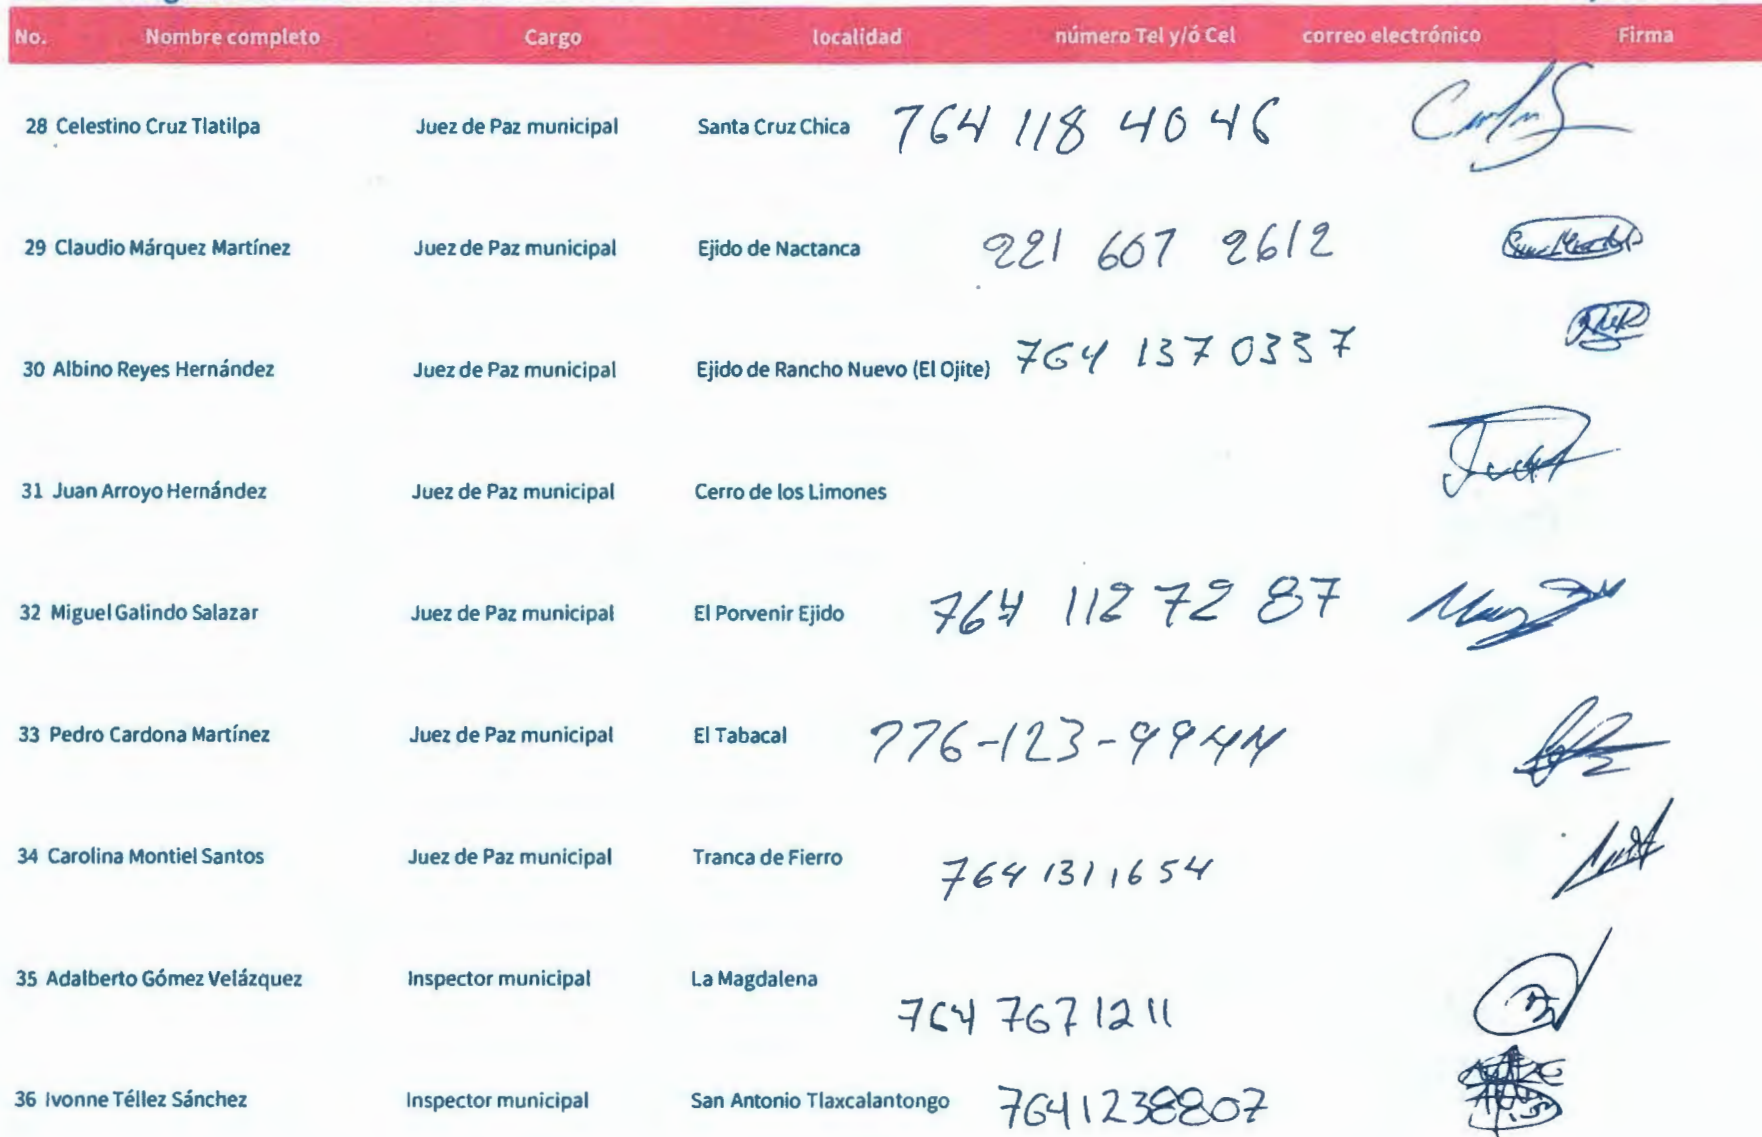 No. Nombre completo Cargo localidad número Tel y/ó Cel correo electrónico Firma
28 Celestino Cruz Tlatilpa Juez de Paz municipal Santa Cruz Chica 764 118 40 46
29 Claudio Márquez Martínez Juez de Paz municipal Ejido de Nactanca 221 607 2612
30 Albino Reyes Hernández Juez de Paz municipal Ejido de Rancho Nuevo (El Ojite) 764 137 0337
31 Juan Arroyo Hernández Juez de Paz municipal Cerro de los Limones
32 Miguel Galindo Salazar Juez de Paz municipal El Porvenir Ejido 764 112 72 87
33 Pedro Cardona Martínez Juez de Paz municipal El Tabacal 776-123-9944
34 Carolina Montiel Santos Juez de Paz municipal Tranca de Fierro 764 131 1654
35 Adalberto Gómez Velázquez Inspector municipal La Magdalena 764 767 1211
36 Ivonne Téllez Sánchez Inspector municipal San Antonio Tlaxcalantongo 7641238807